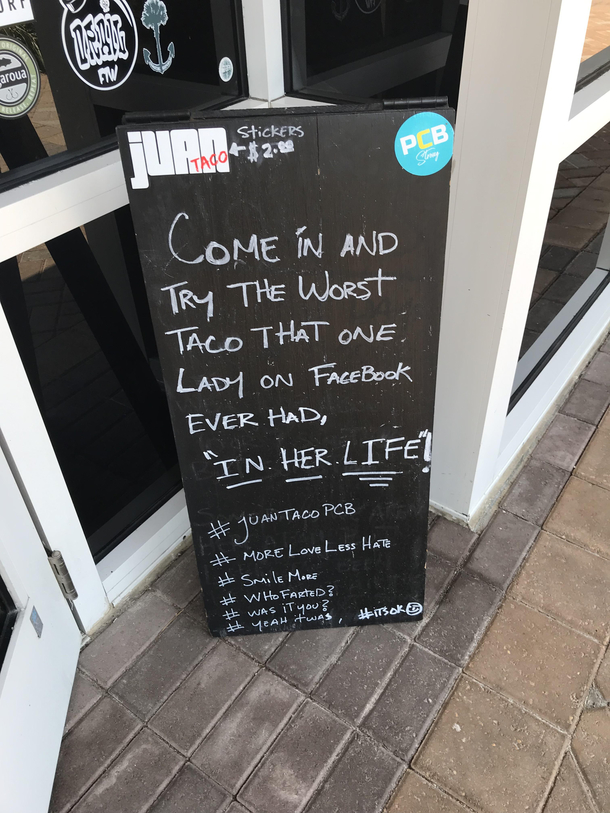 juan
TACO
STICKERS
$2.00
PCB
Strong
COME IN AND
TRY THE WORST
TACO THAT ONE
LADY ON FACEBOOK
EVER HAD,
"IN HER LIFE"!
# JUANTACOPCB
# MORE LOVE LESS HATE
# SMILE MORE
# WHO FARTED?
# WAS IT YOU?
# YEAH IT WAS, #ITSOK
aroua
FTW